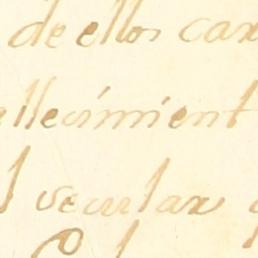 de ellos car
allecimient
l secular